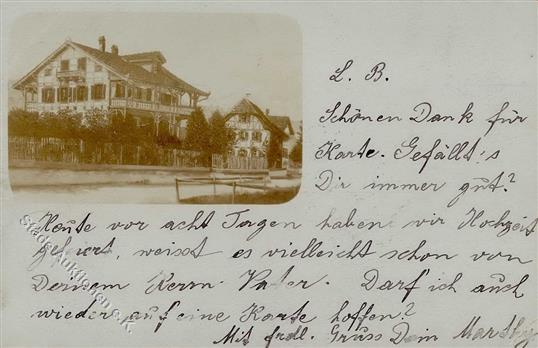 L. B.
Schönen Dank für
Karte. Gefällt's
Dir immer gut?
Heute vor acht Tagen haben wir Hochzeit
gefeiert, weisst es vielleicht schon von
Deinem Herrn Vater. Darf ich auch
wieder auf eine Karte hoffen?
Mit frdl. Gruss Dein